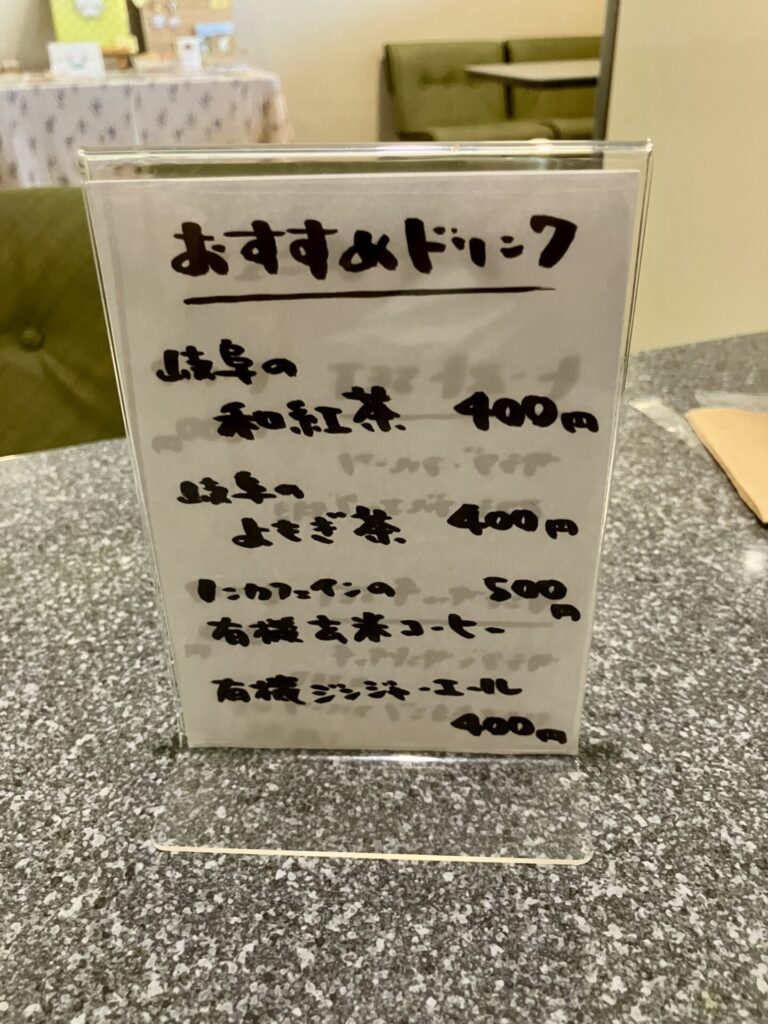 おすすめドリンク
岐阜の
和紅茶 400円
岐阜の
よもぎ茶 400円
ノンカフェインの 500円
有機玄米コーヒー
有機ジンジャーエール
400円